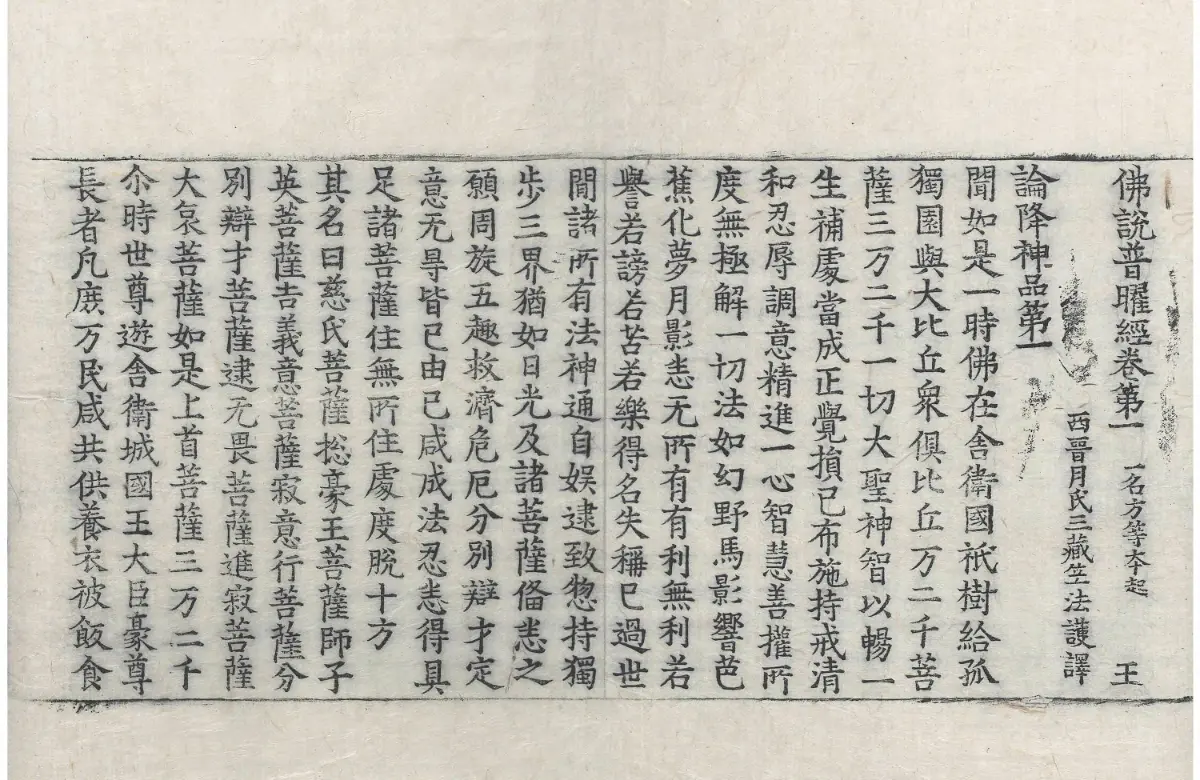 佛說普曜經卷第一 一名方等本起 王
西晉月氏三藏竺法護譯
論降神品第一
聞如是一時佛在舍衛國祇樹給孤
獨園與大比丘眾俱比丘万二千菩
薩三万二千一切大聖神智以暢一
生補處當成正覺損已布施持戒清
和忍辱調意精進一心智慧善權所
度無極解一切法如幻野馬影響芭
蕉化夢月影恚无所有有利無利若
譽若謗若苦若樂得名失稱已過世
閒諸所有法神通自娛逮致惣持獨
步三界猶如日光及諸菩薩俻恚之
願周旋五趣救濟危厄分別辯才定
意无㝵皆已由己咸成法忍恚得具
足諸菩薩住無所住處度脫十方
其名曰慈氏菩薩揔豪王菩薩師子
英菩薩吉義意菩薩寂意行菩薩分
別辯才菩薩逮无畏菩薩進寂菩薩
大哀菩薩如是上首菩薩三万二千
尒時世尊遊舍衛城國王大臣豪尊
長者凡庶万民咸共供養衣被飯食